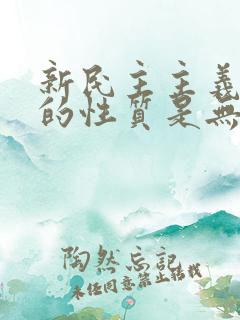 新民主主義
的性質是無
陶然忘记
未经同意禁止转载